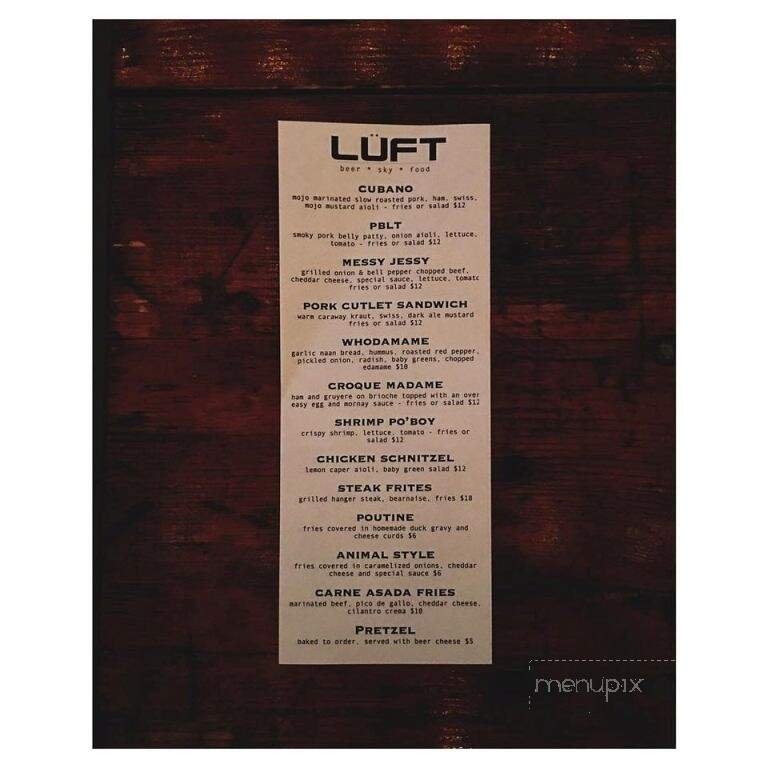 LÜFT
beer * sky * food
CUBANO
mojo marinated slow roasted pork, ham, swiss,
mojo mustard aioli - fries or salad $12
PBLT
smoky pork belly patty, onion aioli, lettuce,
tomato - fries or salad $12
MESSY JESSY
grilled onion & bell pepper chopped beef,
cheddar cheese, special sauce, lettuce, tomato
fries or salad $12
PORK CUTLET SANDWICH
warm caraway kraut, swiss, dark ale mustard
fries or salad $12
WHODAMAME
garlic naan bread, hummus, roasted red pepper,
pickled onion, radish, baby greens, chopped
edamame $10
CROQUE MADAME
ham and gruyere on brioche topped with an over
easy egg and mornay sauce - fries or salad $12
SHRIMP PO'BOY
crispy shrimp, lettuce, tomato - fries or
salad $12
CHICKEN SCHNITZEL
lemon caper aioli, baby green salad $12
STEAK FRITES
grilled hanger steak, bearnaise, fries $18
POUTINE
fries covered in homemade duck gravy and
cheese curds $6
ANIMAL STYLE
fries covered in caramelized onions, cheddar
cheese and special sauce $6
CARNE ASADA FRIES
marinated beef, pico de gallo, cheddar cheese,
cilantro crema $10
PRETZEL
baked to order, served with beer cheese $5
menupix